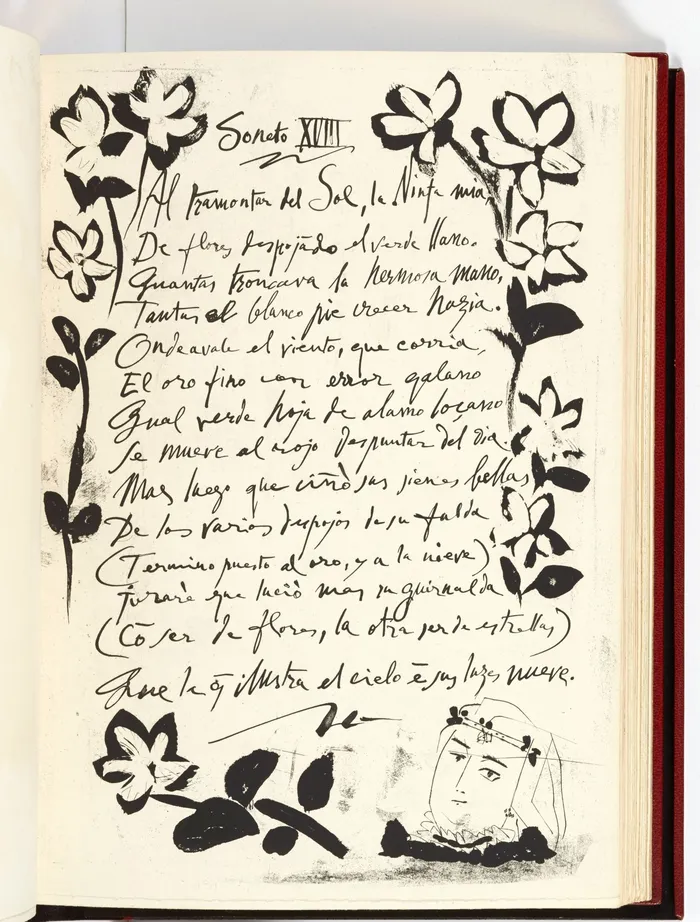 Soneto XVIII
Al tramontar del Sol, la Ninfa mia,
De flores despojādo el verde llano.
Quantas troncava la hermosa mano,
Tantas el blanco pie crecer hazia.
Ondeavale el viento, que corria,
El oro fino con error galano
Qual verde hoja de alamo loçano
Se mueve al rojo despuntar del dia.
Mas luego que ciñò sus sienes bellas
De los varios despojos de su falda
(Termino puesto al oro, y a la nieve)
Jurarè que luciò mas su guirnalda
(Cō ser de flores, la otra ser de estrellas)
Que la q̄ illustra el cielo ē sus luzes nueve.